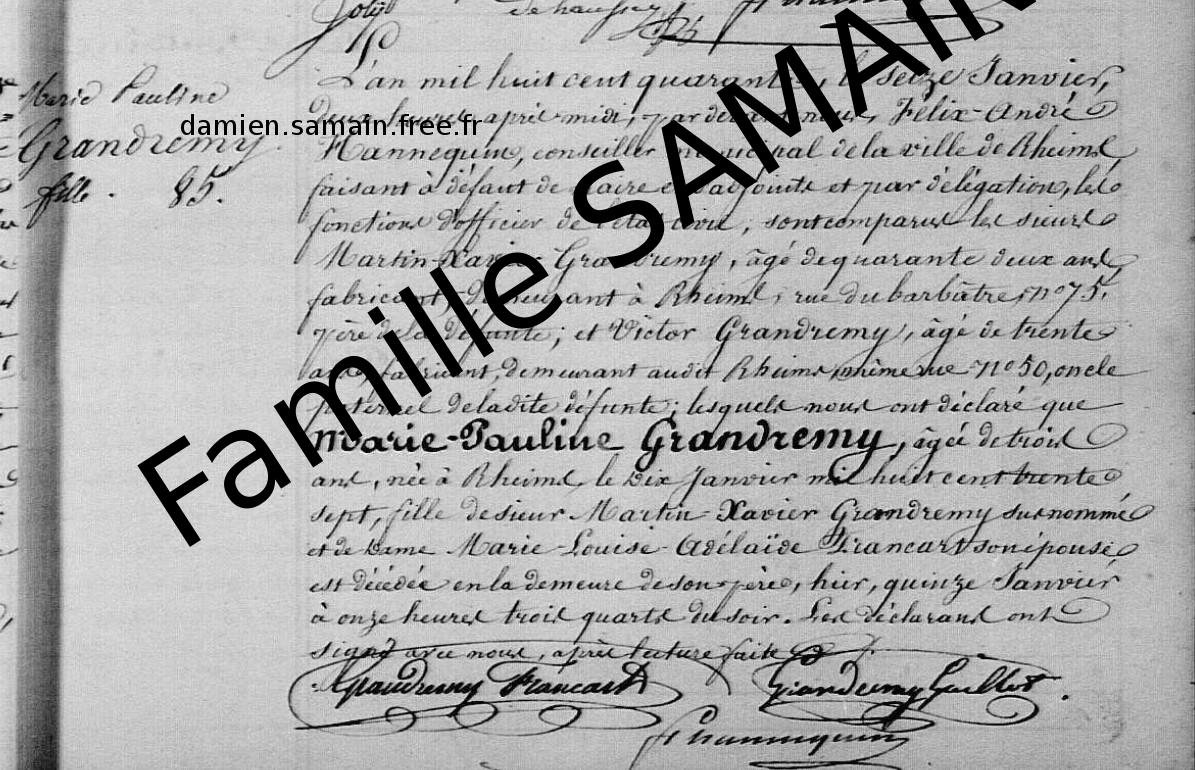 de haussez
L'an mil huit cent quarante, le seize Janvier,
deux heures après midi, par devant nous, Félix-André
Hannequin, conseiller municipal de la ville de Rheims,
faisant à défaut de Maire et d'adjoints et par délégation, les
fonctions d'officier de l'état civil, sont comparus les sieurs
Martin-Xavier Grandremy, âgé de quarante deux ans,
fabricant, demeurant à Rheims, rue du barbâtre, n° 75,
père de la défunte; et Victor Grandremy, âgé de trente
ans, fabricant, demeurant audit Rheims, même rue n° 50, oncle
paternel de ladite défunte; lesquels nous ont déclaré que
Marie-Pauline Grandremy, âgée de trois
ans, née à Rheims, le dix Janvier mil huit cent trente
sept, fille de sieur Martin-Xavier Grandremy susnommé
et de Dame Marie-Louise-Adélaïde Francart son épouse
est décédée en la demeure de son père, hier, quinze Janvier
à onze heures trois quarts du soir. Les déclarans ont
signé avec nous, après lecture faite
Grandremy Francart
Grandremy Guillet
Fhannequin
Marie Pauline
Grandremy.
fille. 85.
damien.samain.free.fr
Famille SAMAIN